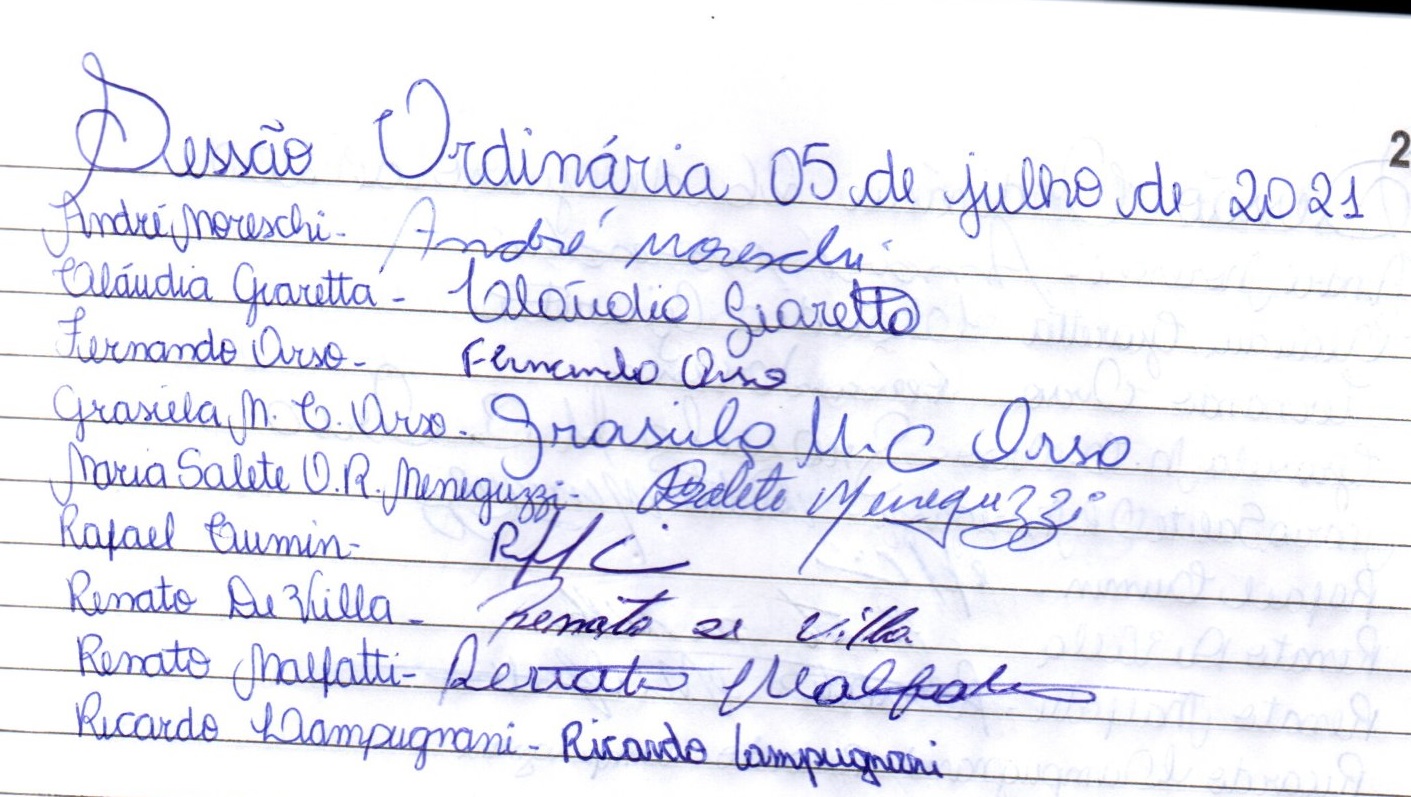 Sessão Ordinária 05 de julho de 2021
2
André Moreschi - André Moreschi
Claúdia Giaretta - Claúdia Giaretta
Fernando Orso - Fernando Orso
Grasiela M. C. Orso - Grasiela M. C Orso
Maria Salete O. R. Meneguzzi - Salete Meneguzzi
Rafael Cumin -
Renato De Villa - Renato de Villa
Renato Malfatti - Renato Malfatti
Ricardo Lampugnani - Ricardo Lampugnani